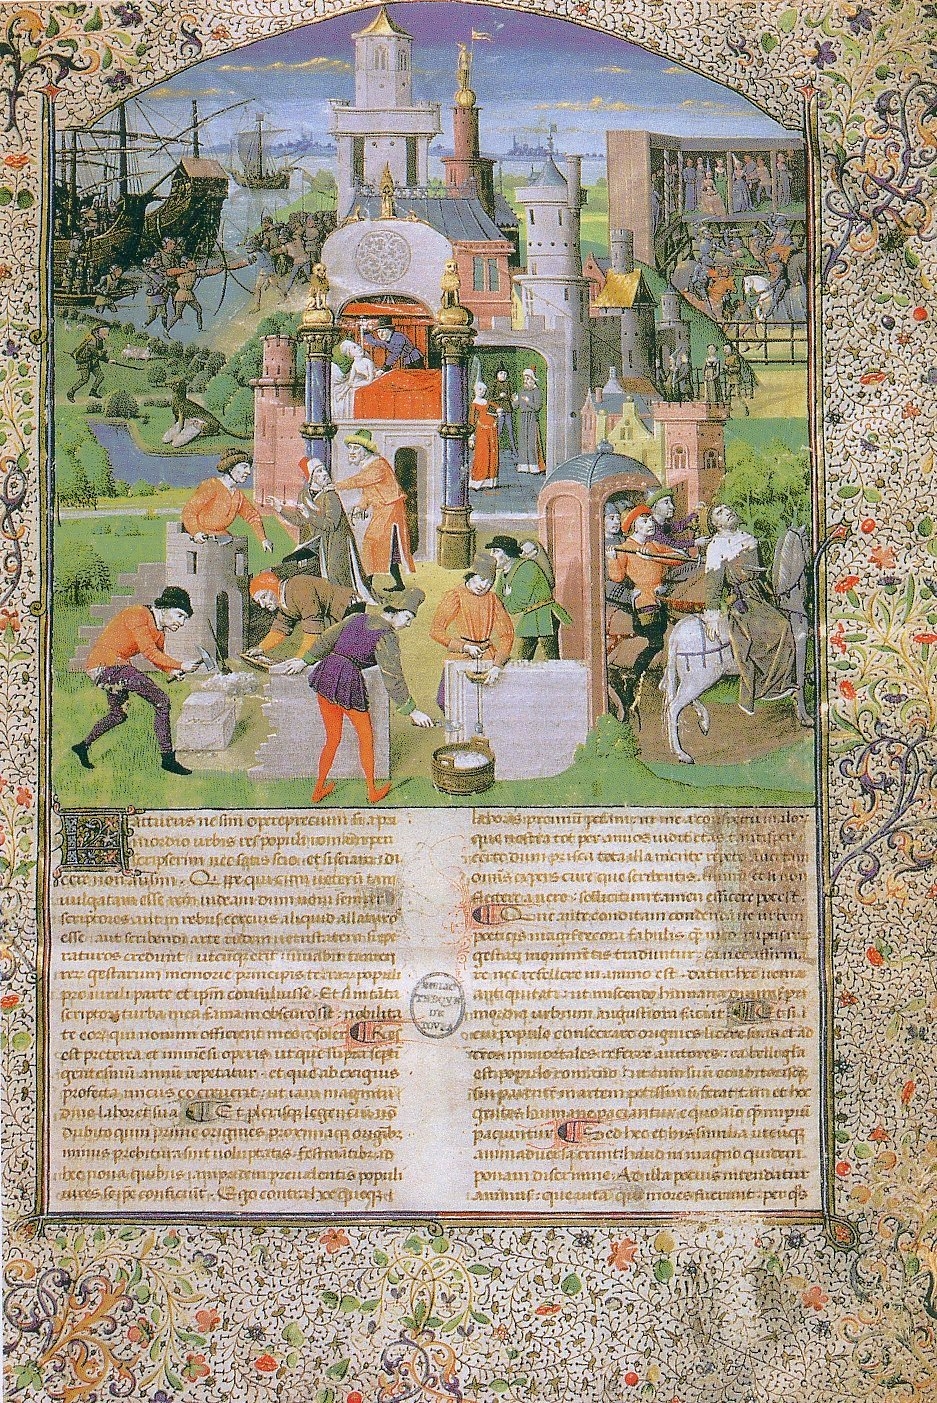 Facturus ne sim opereprecium si a pri
mordio urbis res populi romani
perscripserim nec satis scio, et si sciam di
cere non ausim. Quippe qui cum veterem tam
vulgatam esse rem videam dum novi semper
scriptores aut in rebus certius aliquid allaturos
esse aut scribendi arte rudem vetustatem supe
raturos credunt. utcunque erit iuvabit tamen
rerum gestarum memorie principis terrarum populi
pro virili parte et ipm consuluisse. Et si in tāta
scriptorum turba mea fama in obscuro sit: nobilita
nomini officient meo me consoler. Res
est preterea et immensi operis ut que supra septi
gentesimū annū repetatur: et que ab exiguis
profecta iniciis eo creverit ut iam magnitu
dine laboret sua. Et plerisque legencium nō
dubito quin prime origines proximaque origibz
minus prebitura sint voluptatis: festinātibus ad
hec nova quibus iampridem prevalentis populi
vires se ipse conficiūt. Ego contra hoc quoque
laboris premiū petam: ut me a conspectu malor
que nostra tot per annos vidit etas: tantisper
certe dum prisca tota illa mente repeto avertam
omnis expers cure que scribentis animū et si non
flectere a vero sollicitum tamen efficere posset
Que ante conditam condendamve urbem
poeticis magis decora fabulis qm incorruptis rerum
gestarum monimētis tradūtur ea nec affirma
re nec refellere in animo est. Datur hec venia
antiquitati: ut miscendo humana divinis pri
mordia urbium augustiora faciat. Et si
cui populo consecrare origines licere suas et ad
deos immortales referre auctores: ea belli gloria
est populo romano: ut cum suum conditorisque
sui parentem martem potissimū ferat: tam et hoc
gentes humane paciantur equo aīo qm imperiū
paciuntur. Sed hec et his similia utcunque
animadversa erunt haud in magno equidem
ponam discrimine. Ad illa pro se quisque intendat
animus: que vita qui mores fuerint: per quos
BIBLIOTHEQUE
DE
TOURS